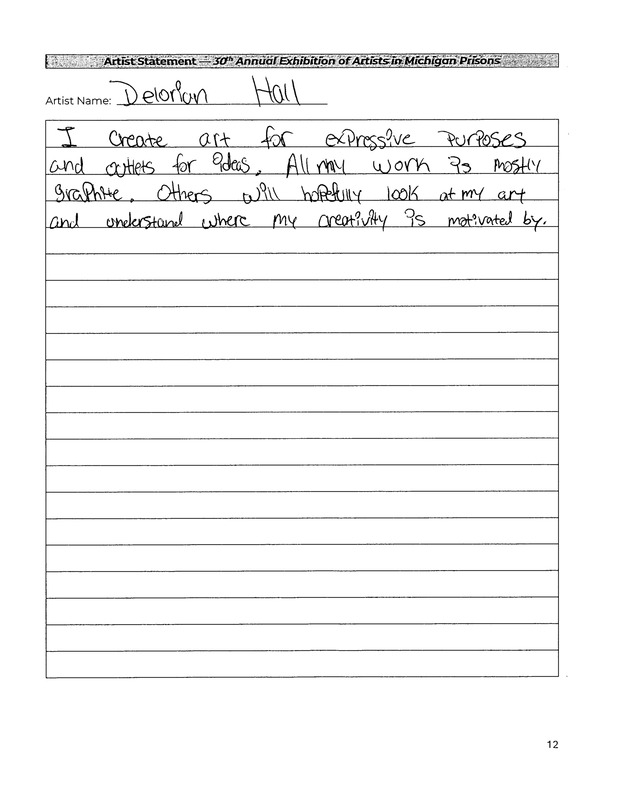 Artist Statement — 30th Annual Exhibition of Artists in Michigan Prisons
Artist Name: Delorian Hall
I Create art for expressive purposes
and outlets for ideas. All my work is mostly
graphite. Others will hopefully look at my art
and understand where my creativity is motivated by.
12